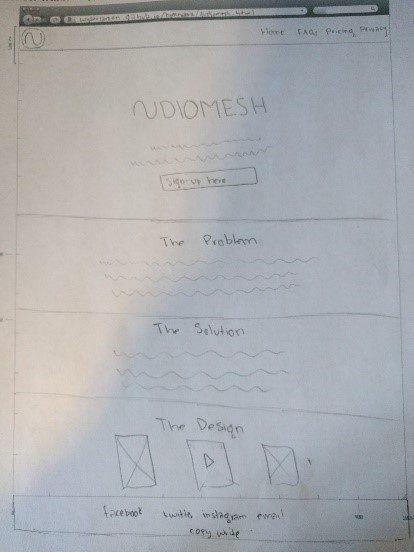 N
Home FAQs Pricing Privacy
NDIOMESH
Sign-up here
The Problem
The Solution
The Design
facebook twitter instagram email
copy write